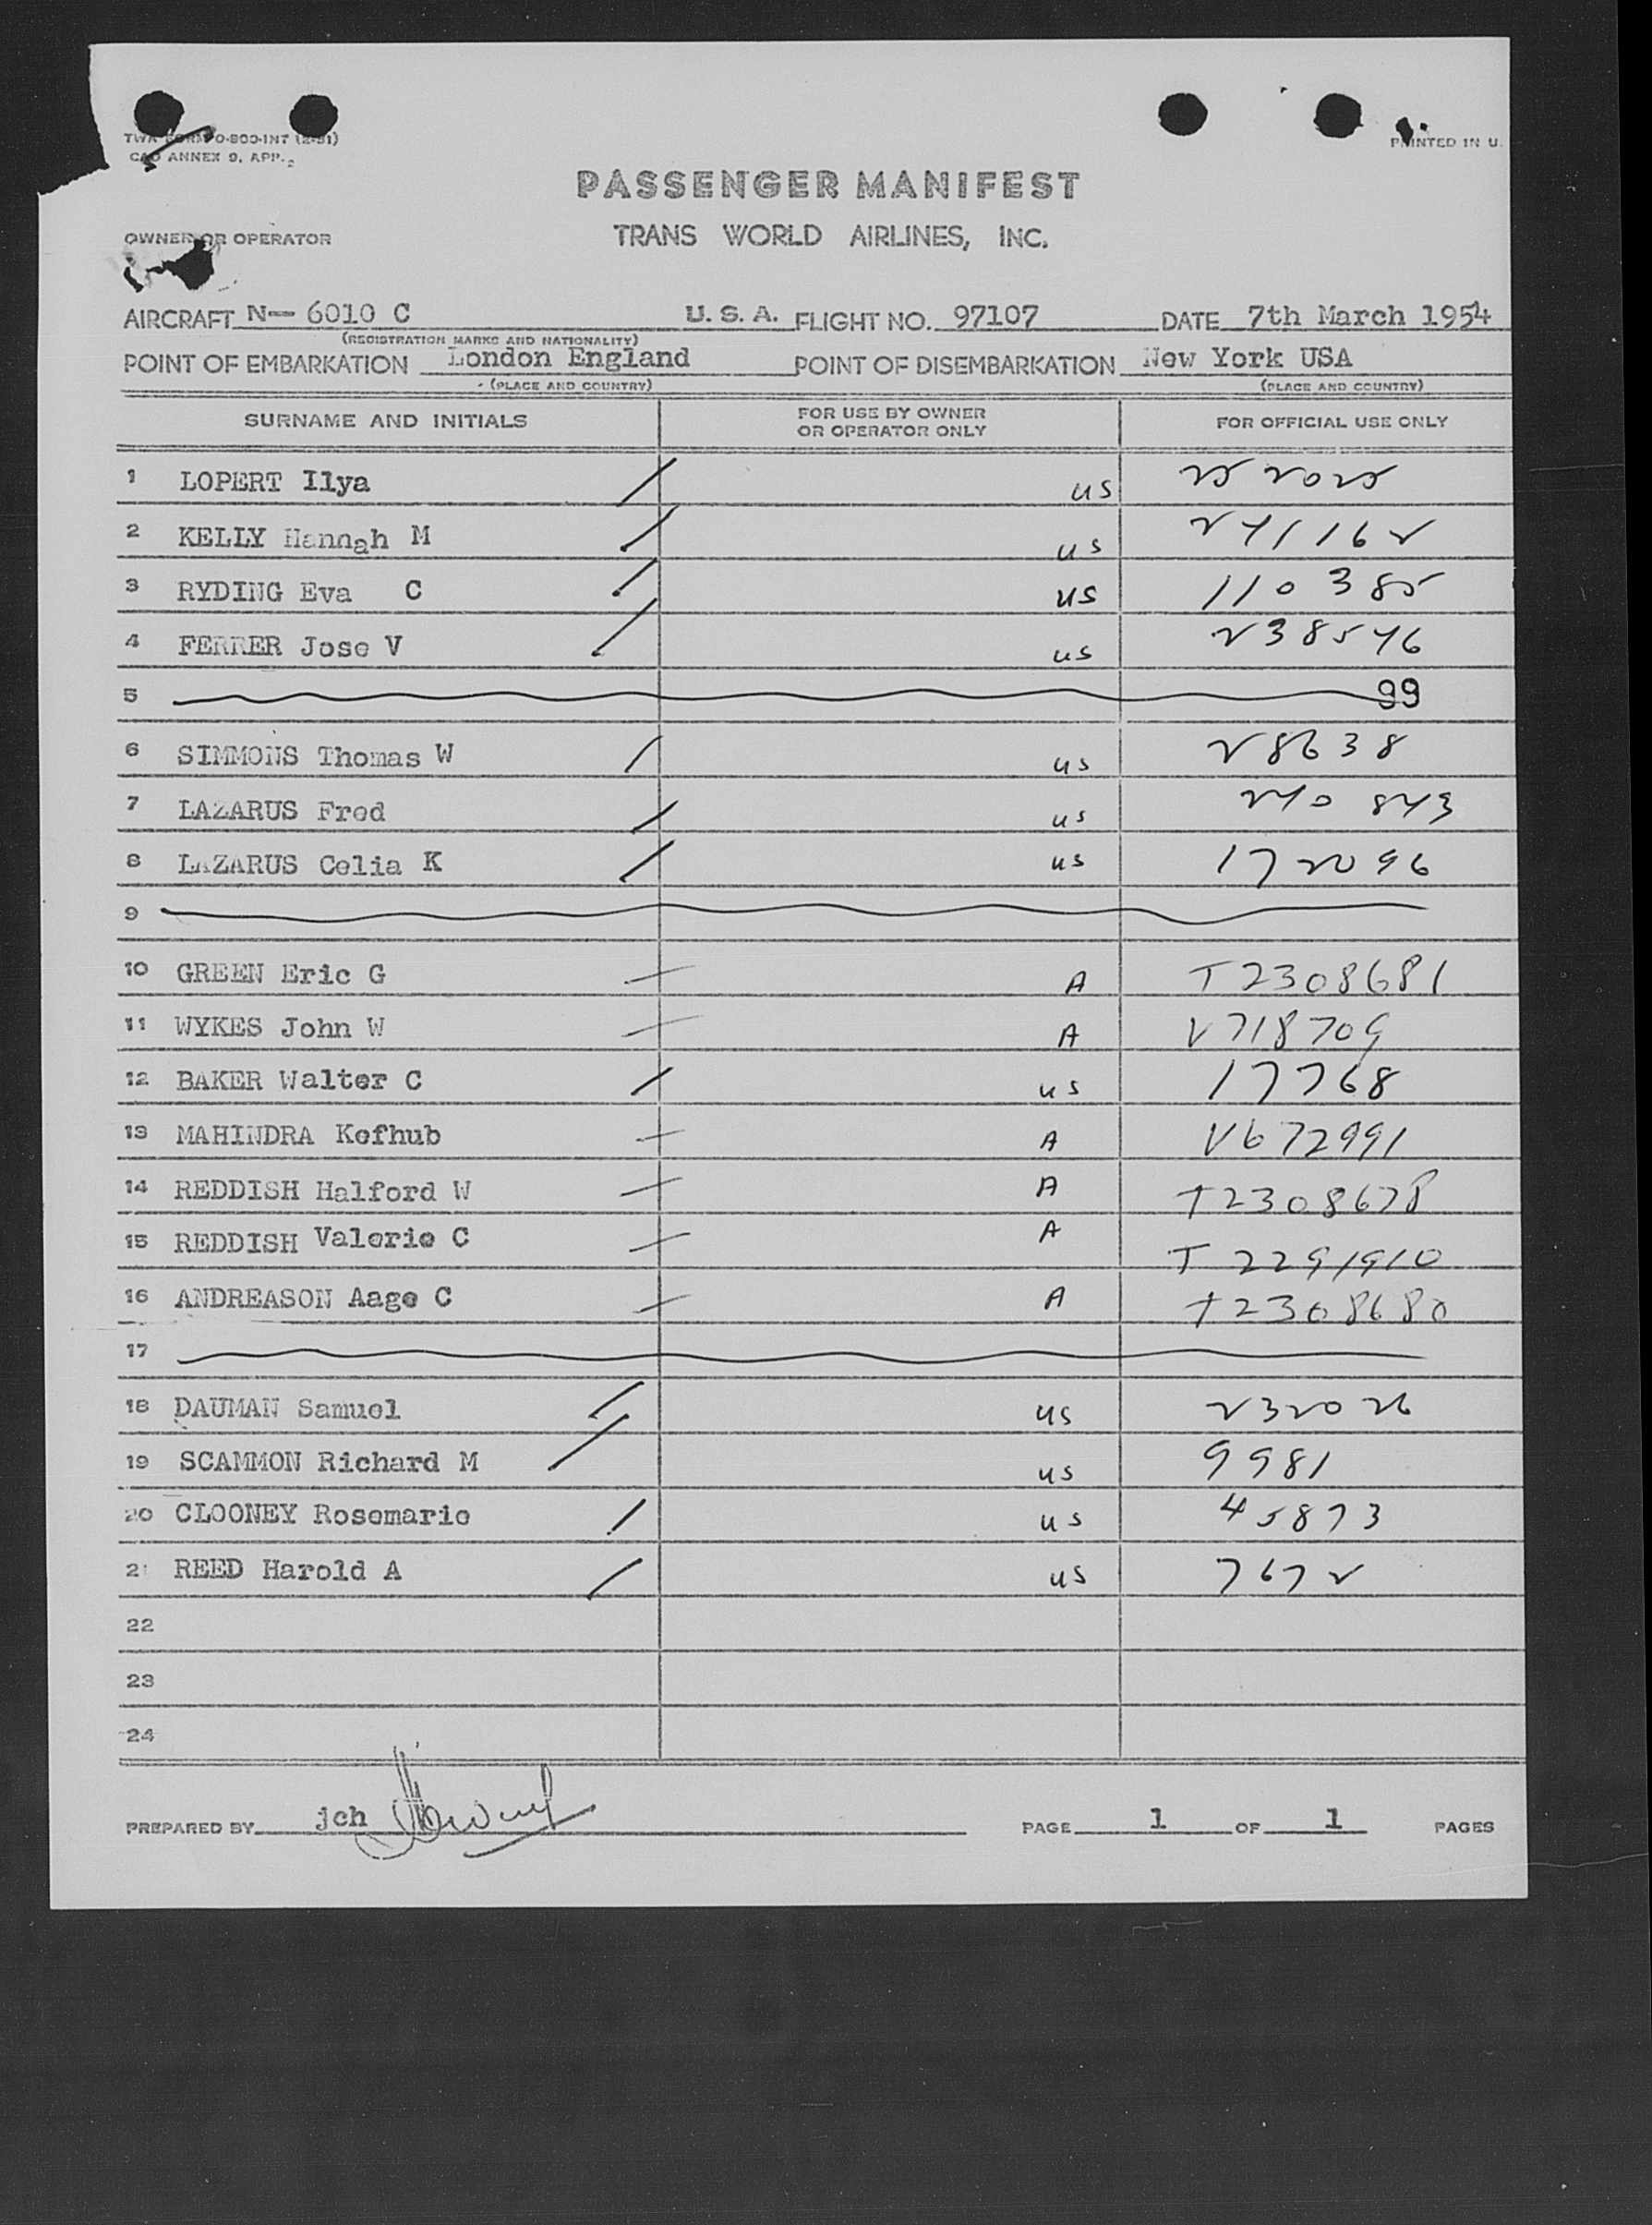 TWA FORM O-800-INT (2-51)
CAO ANNEX 9, APP. 2
PRINTED IN U.
PASSENGER MANIFEST
OWNER OR OPERATOR
TRANS WORLD AIRLINES, INC.
AIRCRAFT N-- 6010 C U. S. A. FLIGHT NO. 97107 DATE 7th March 1954
(REGISTRATION MARKS AND NATIONALITY)
POINT OF EMBARKATION London England POINT OF DISEMBARKATION New York USA
(PLACE AND COUNTRY) (PLACE AND COUNTRY)
SURNAME AND INITIALS FOR USE BY OWNER OR OPERATOR ONLY FOR OFFICIAL USE ONLY
1 LOPERT Ilya us 252025
2 KELLY Hannah M us 241162
3 RYDING Eva C us 110 385
4 FERRER Jose V us 238546
5 99
6 SIMMONS Thomas W us 28638
7 LAZARUS Fred us 240 843
8 LAZARUS Celia K us 172096
9
10 GREEN Eric G A T2308681
11 WYKES John W A V718709
12 BAKER Walter C us 17768
13 MAHINDRA Kefhub A V672991
14 REDDISH Halford W A T2308678
15 REDDISH Valerie C A T 2291910
16 ANDREASON Aage C A T2308680
17
18 DAUMAN Samuel us 232026
19 SCAMMON Richard M us 9981
20 CLOONEY Rosemarie us 45873
21 REED Harold A us 7672
22
23
24
PREPARED BY jch PAGE 1 OF 1 PAGES